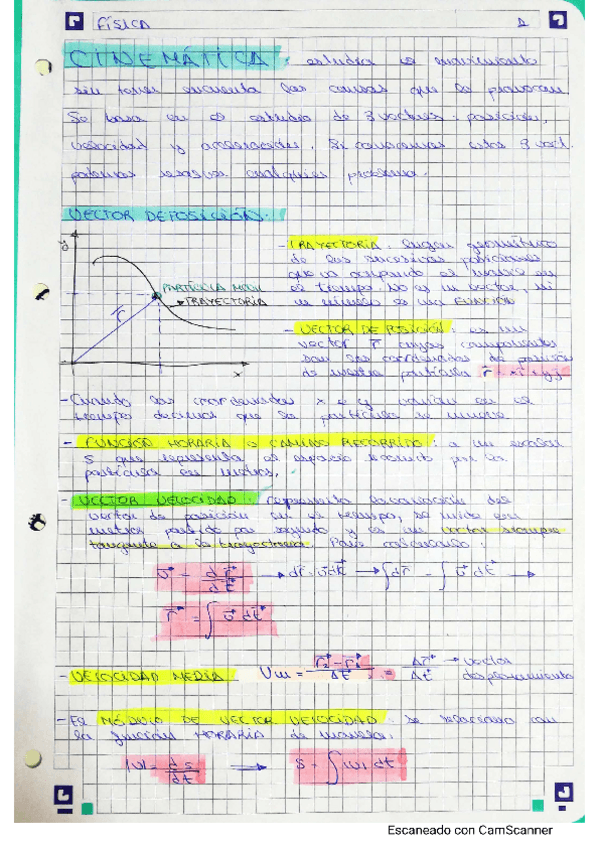 FÍSICA 1
CINEMÁTICA : estudia el movimiento
sin tener en cuenta las causas que lo provocan.
Se basa en el estudio de 3 vectores: posición,
velocidad y aceleración. Si conocemos estos 3 vect.
podemos resolver cualquier problema.
VECTOR DE POSICIÓN:
y
PARTÍCULA MÓVIL
TRAYECTORIA
r⃗
x
- TRAYECTORIA: lugar geométrico
de las sucesivas posiciones
que va ocupando el
el tiempo. No es un vector, ni
un número es una FUNCIÓN
- VECTOR DE POSICIÓN: es un
vector r⃗ cuyas componentes
son las coordenadas de posición
de nuestra partícula
- Cuando las coordenadas x e y varían en el
tiempo decimos que la partícula se mueve
- FUNCIÓN HORARIA O CAMINO RECORRIDO: a un escalar
S que representa el espacio recorrido por la
partícula en metros.
- VECTOR VELOCIDAD: representa la variación del
vector de posición en el tiempo, se mide en
metros partido por segundo y es un vector siempre
tangente a la trayectoria. Para calcularlo:
v⃗ = dr⃗/dt → dr⃗ = v⃗dt → ∫dr⃗ = ∫v⃗dt →
r⃗ = ∫v⃗dt
- VELOCIDAD MEDIA Vm = (r⃗₂ - r⃗₁)/Δt = Δr⃗/Δt → vector
desplazamiento
- El MÓDULO DE VECTOR VELOCIDAD: se relaciona con
la función HORARIA de manera:
|v| = ds/dt → S = ∫|v| dt
Escaneado con CamScanner